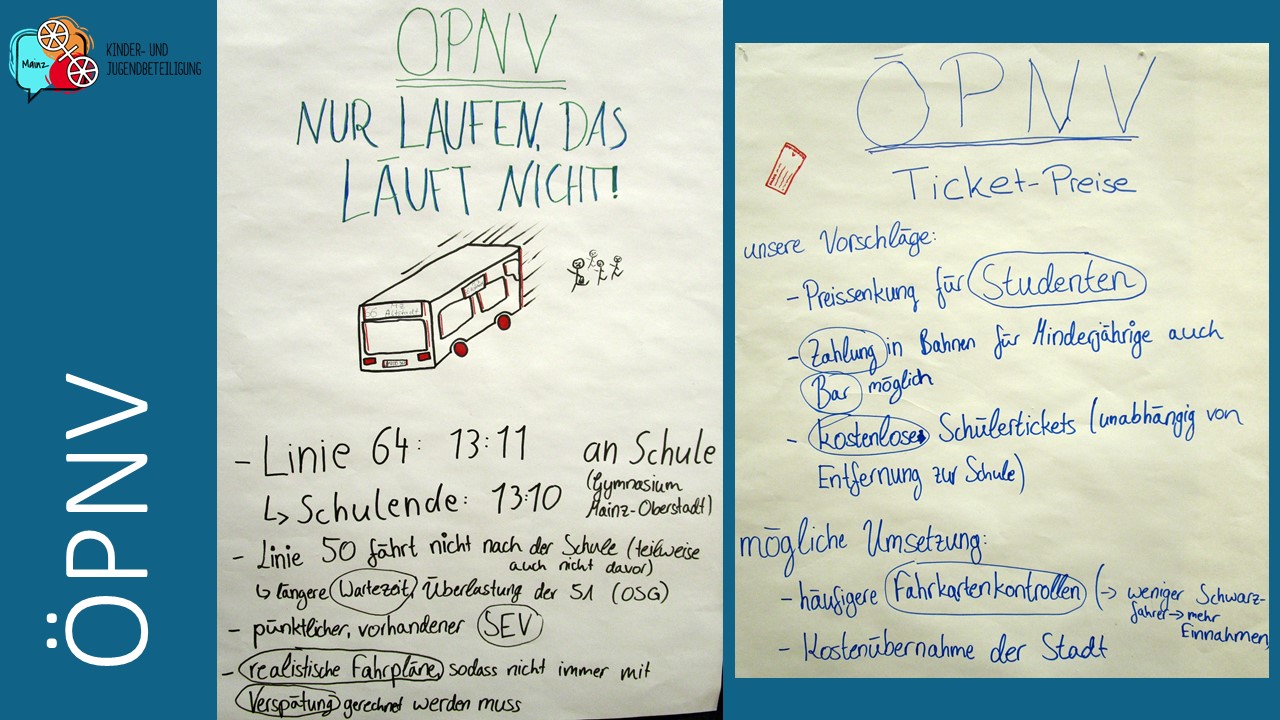 Mainz
KINDER- UND
JUGENDBETEILIGUNG
ÖPNV
ÖPNV
NUR LAUFEN, DAS
LÄUFT NICHT!
Altstadt
- Linie 64: 13:11 an Schule
↳ Schulende: 13:10 (Gymnasium
Mainz-Oberstadt)
- Linie 50 fährt nicht nach der Schule (teilweise
auch nicht davor)
↳ längere Wartezeit, Überlastung der 51 (OSG)
- pünktlicher, vorhandener SEV
- realistische Fahrpläne, sodass nicht immer mit
Verspätung gerechnet werden muss
ÖPNV
Ticket-Preise
unsere Vorschläge:
- Preissenkung für Studenten
- Zahlung in Bahnen für Minderjährige auch
Bar möglich
- kostenlose Schülertickets (unabhängig von
Entfernung zur Schule)
mögliche Umsetzung:
- häufigere Fahrkartenkontrollen (→ weniger Schwarz-
fahrer → mehr
Einnahmen)
- Kostenübernahme der Stadt